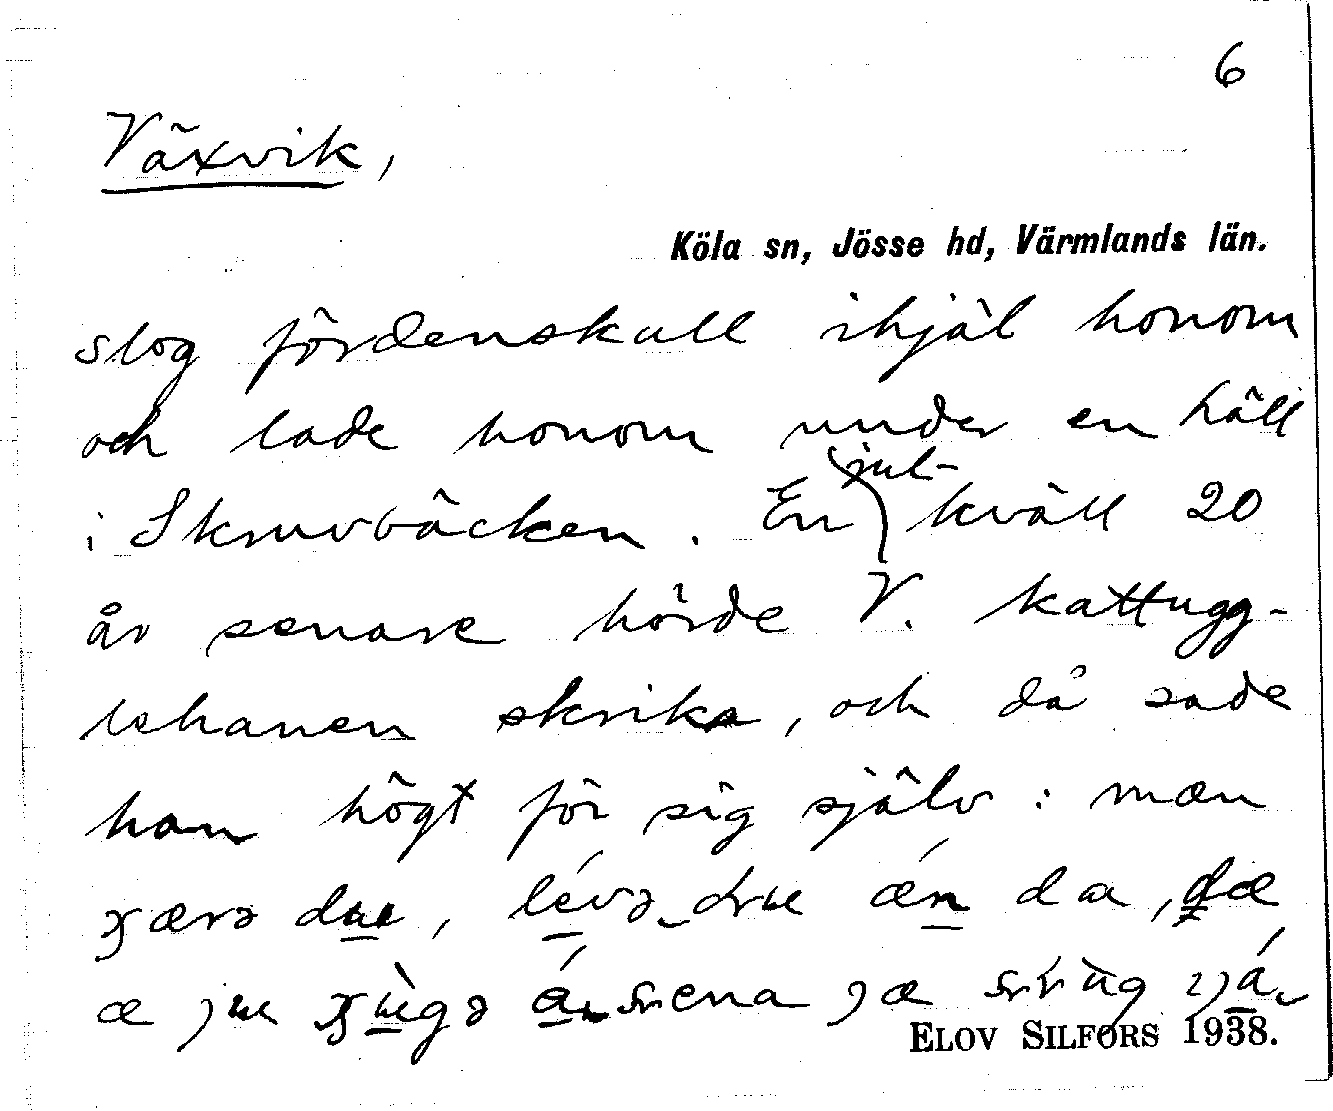 6
Växvik,
Köla sn, Jösse hd, Värmlands län.
slog fördenskull ihjäl honom
och lade honom under en häll
i Skruvbäcken. En jul-kväll 20
år senare hörde V. kattugg-
lehanen skrika, och då sade
han högt för sig själv: mæn
due, lévə due æn da, dæ
æ
ELOV SILFORS 1938.